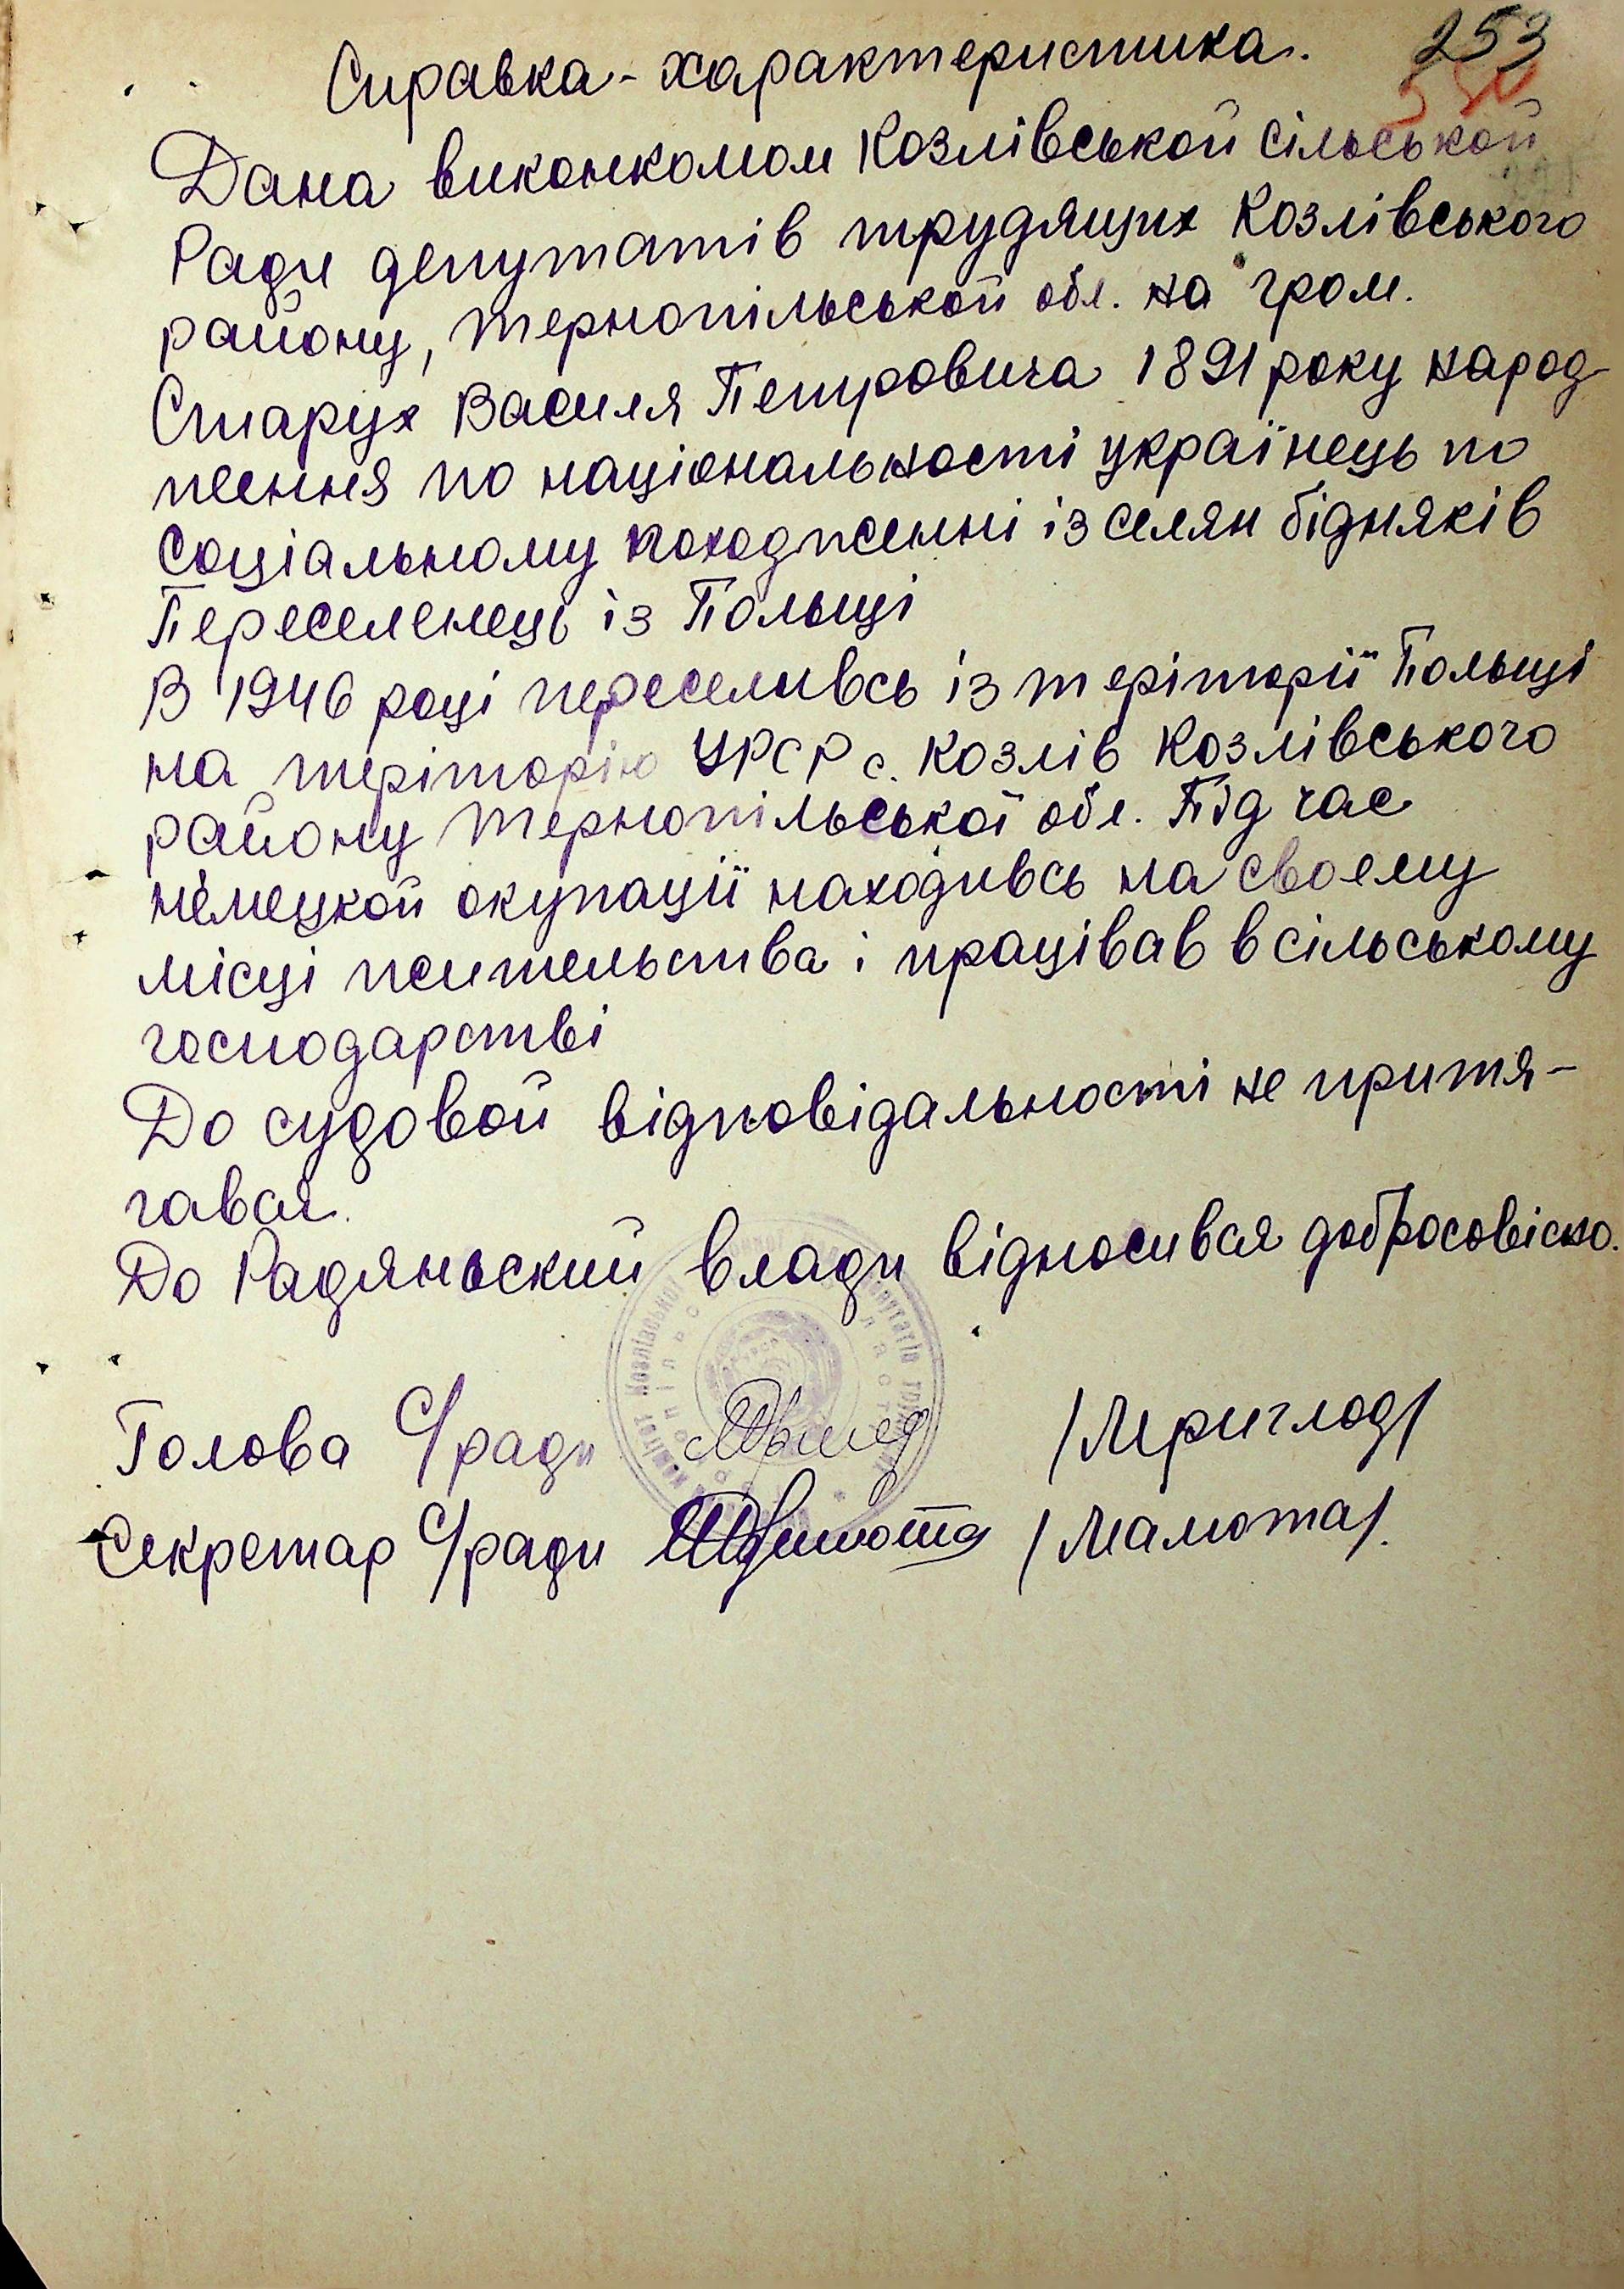 253
Справка-характеристика.
Дана виконкомом Козлівськой сільськой
Ради депутатів трудящих Козлівського
району, Тернопільськой обл. на гром.
Старух Василя Петровича 1891 року народ-
ження по національності українець по
соціальному походженні із селян бідняків
Переселенець із Польщі
В 1946 році переселивсь із теріторії Польщі
на теріторію УРСР с. Козлів Козлівського
району Тернопільської обл. Під час
німецкой окупації находивсь на своему
місці жительства і працівав в сільському
господарстві
До судовой відповідальності не притя-
гавая.
До Радяньский влади відносився добросовісно.
Голова С/ради /Мериглод/
Секретар С/ради /Мамота/.